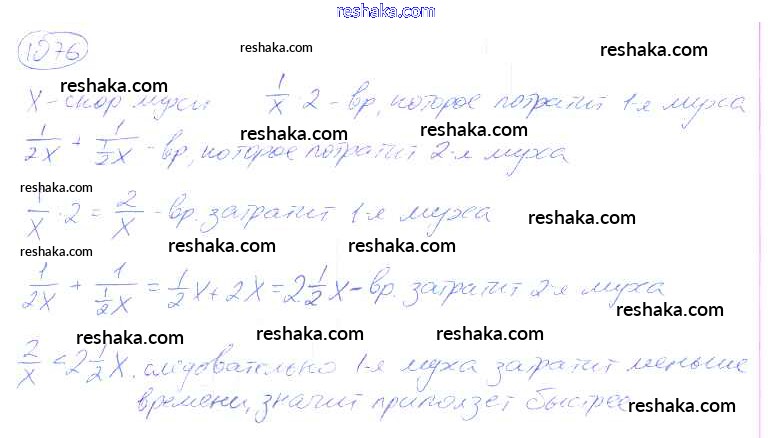 reshaka.com
1076
reshaka.com reshaka.com
reshaka.com
X - скор мухи 1/X · 2 - вр, которое потратит 1-я муха
reshaka.com reshaka.com
1/2X + 1/(1/2 X) - вр, которое потратит 2-я муха
reshaka.com reshaka.com
1/X · 2 = 2/X - вр. затратит 1-я муха
reshaka.com
reshaka.com reshaka.com reshaka.com
1/2X + 1/(1/2 X) = 1/2 X + 2X = 2 1/2 X - вр. затратит 2-я муха
reshaka.com
reshaka.com reshaka.com reshaka.com
2/X < 2 1/2 X, следовательно 1-я муха затратит меньше
времени, значит приползет быстрее
reshaka.com